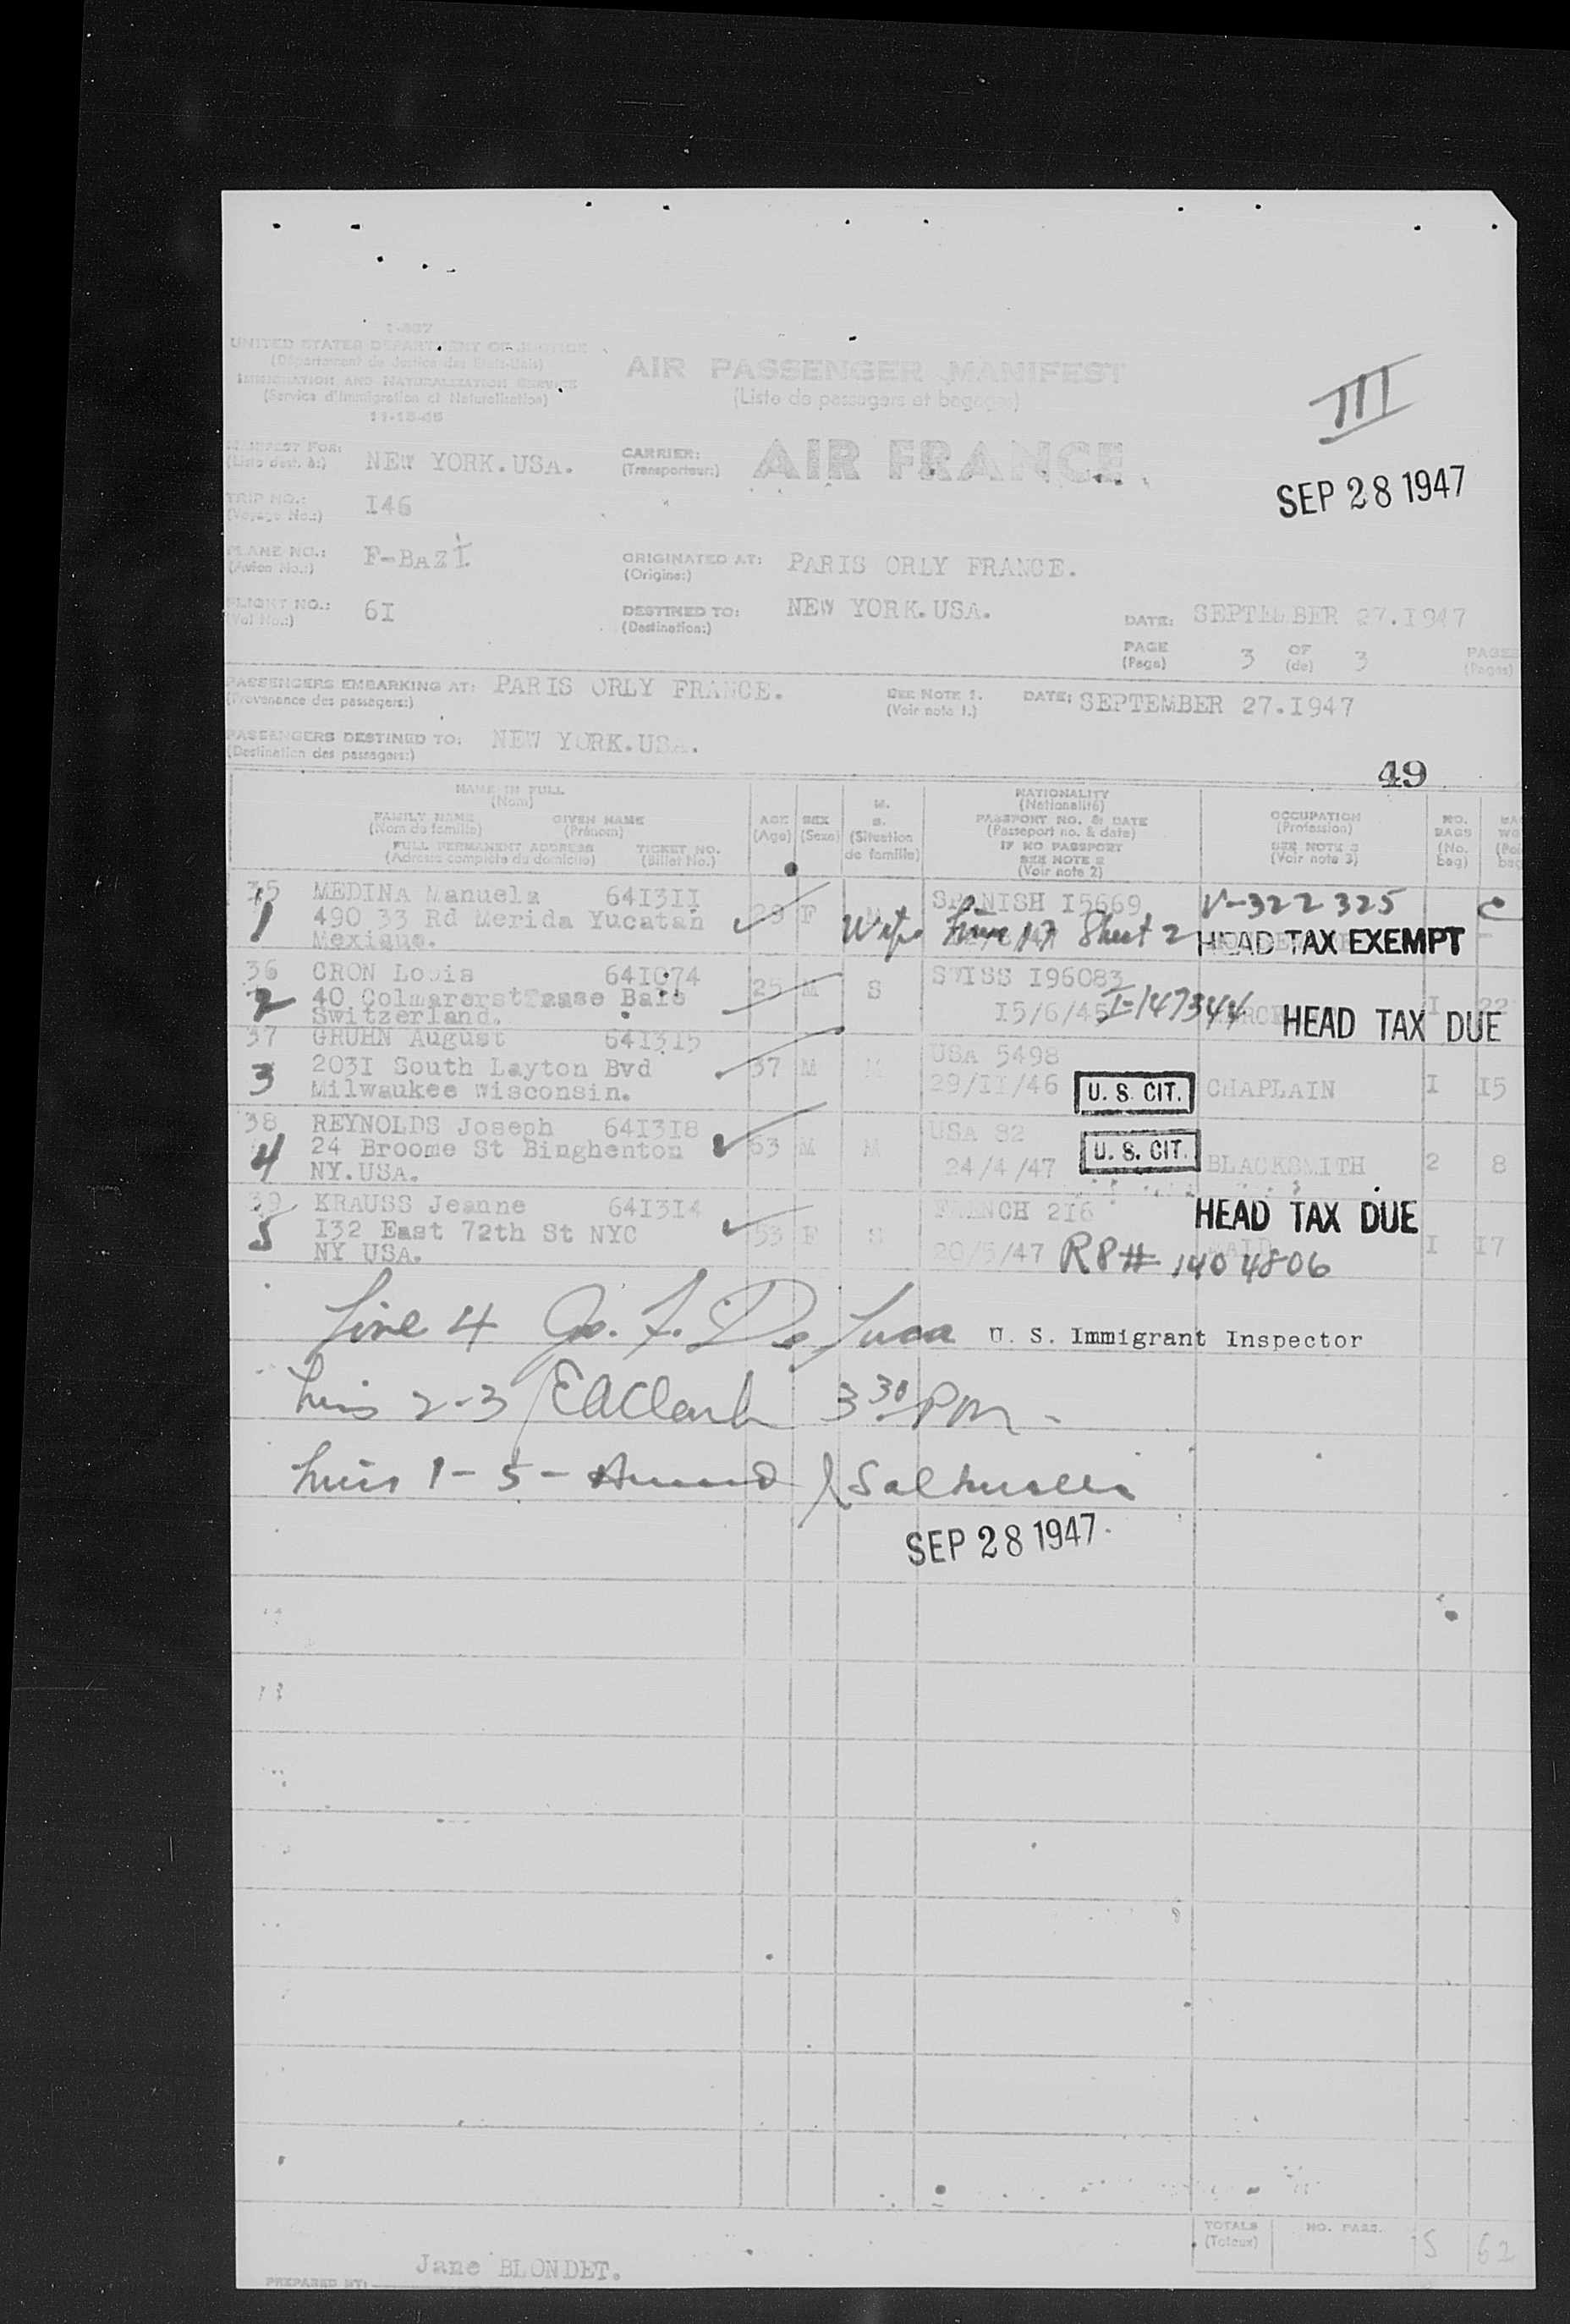 I-587
UNITED STATES DEPARTMENT OF JUSTICE
(Département de Justice des Etats-Unis)
IMMIGRATION AND NATURALIZATION SERVICE
(Service d'Immigration et Naturalisation)
11-15-45
AIR PASSENGER MANIFEST
(Liste de passagers et bagages)
III
MANIFEST FOR: NEW YORK.USA.
(Liste dest. à:)
CARRIER: AIR FRANCE
(Transporteur:)
SEP 28 1947
TRIP NO.: I46
(Voyage No.:)
PLANE NO.: F-BAZI
(Avion No.:)
ORIGINATED AT: PARIS ORLY FRANCE.
(Origine:)
FLIGHT NO.: 6I
(Vol No.:)
DESTINED TO: NEW YORK.USA.
(Destination:)
DATE: SEPTEMBER 27.I947
PAGE 3 OF 3 PAGES
(Page) (de) (Pages)
PASSENGERS EMBARKING AT: PARIS ORLY FRANCE. SEE NOTE 1. DATE: SEPTEMBER 27.I947
(Provenance des passagers:) (Voir note 1.)
PASSENGERS DESTINED TO: NEW YORK.USA.
(Destination des passagers:)
49
NAME IN FULL
(Nom)
FAMILY NAME GIVEN NAME
(Nom de famille) (Prénom)
FULL PERMANENT ADDRESS TICKET NO.
(Adresse complète du domicile) (Billet No.)
AGE
(Age)
SEX
(Sexe)
M.
S.
(Situation
de famille)
NATIONALITY
(Nationalité)
PASSPORT NO. & DATE
(Passeport no. & date)
IF NO PASSPORT
SEE NOTE 2
(Voir note 2)
OCCUPATION
(Profession)
SEE NOTE 3
(Voir note 3)
NO.
BAGS
(No.
bag)
35 MEDINA Manuela 64I3II SPANISH I5669 V-322325
1 490 33 Rd Merida Yucatan 29 F M Wife Line 17 Sheet 2 HEAD TAX EXEMPT
Mexique.
36 CRON Louis 64I074 25 M S SWISS I96083
2 40 Colmarerstrasse Bale I5/6/45 I-147344 I 22
Switzerland. HEAD TAX DUE
37 GRUHN August 64I3I5 USA 5498
3 203I South Layton Bvd 37 M M 29/II/46 U. S. CIT. CHAPLAIN I I5
Milwaukee Wisconsin.
38 REYNOLDS Joseph 64I3I8 USA 82
4 24 Broome St Binghenton 63 M M 24/4/47 U. S. CIT. BLACKSMITH 2 8
NY.USA.
39 KRAUSS Jeanne 64I3I4 FRENCH 2I6 HEAD TAX DUE
5 I32 East 72th St NYC 53 F S 20/5/47 RP# 1404806 MAID I I7
NY USA.
Line 4 Jo. F. De Luca U. S. Immigrant Inspector
Lines 2-3 EAClark 3 30 PM -
Lines 1-5-
SEP 28 1947
TOTALS NO. PASS. 5 62
(Totaux)
PREPARED BY: Jane BLONDET.